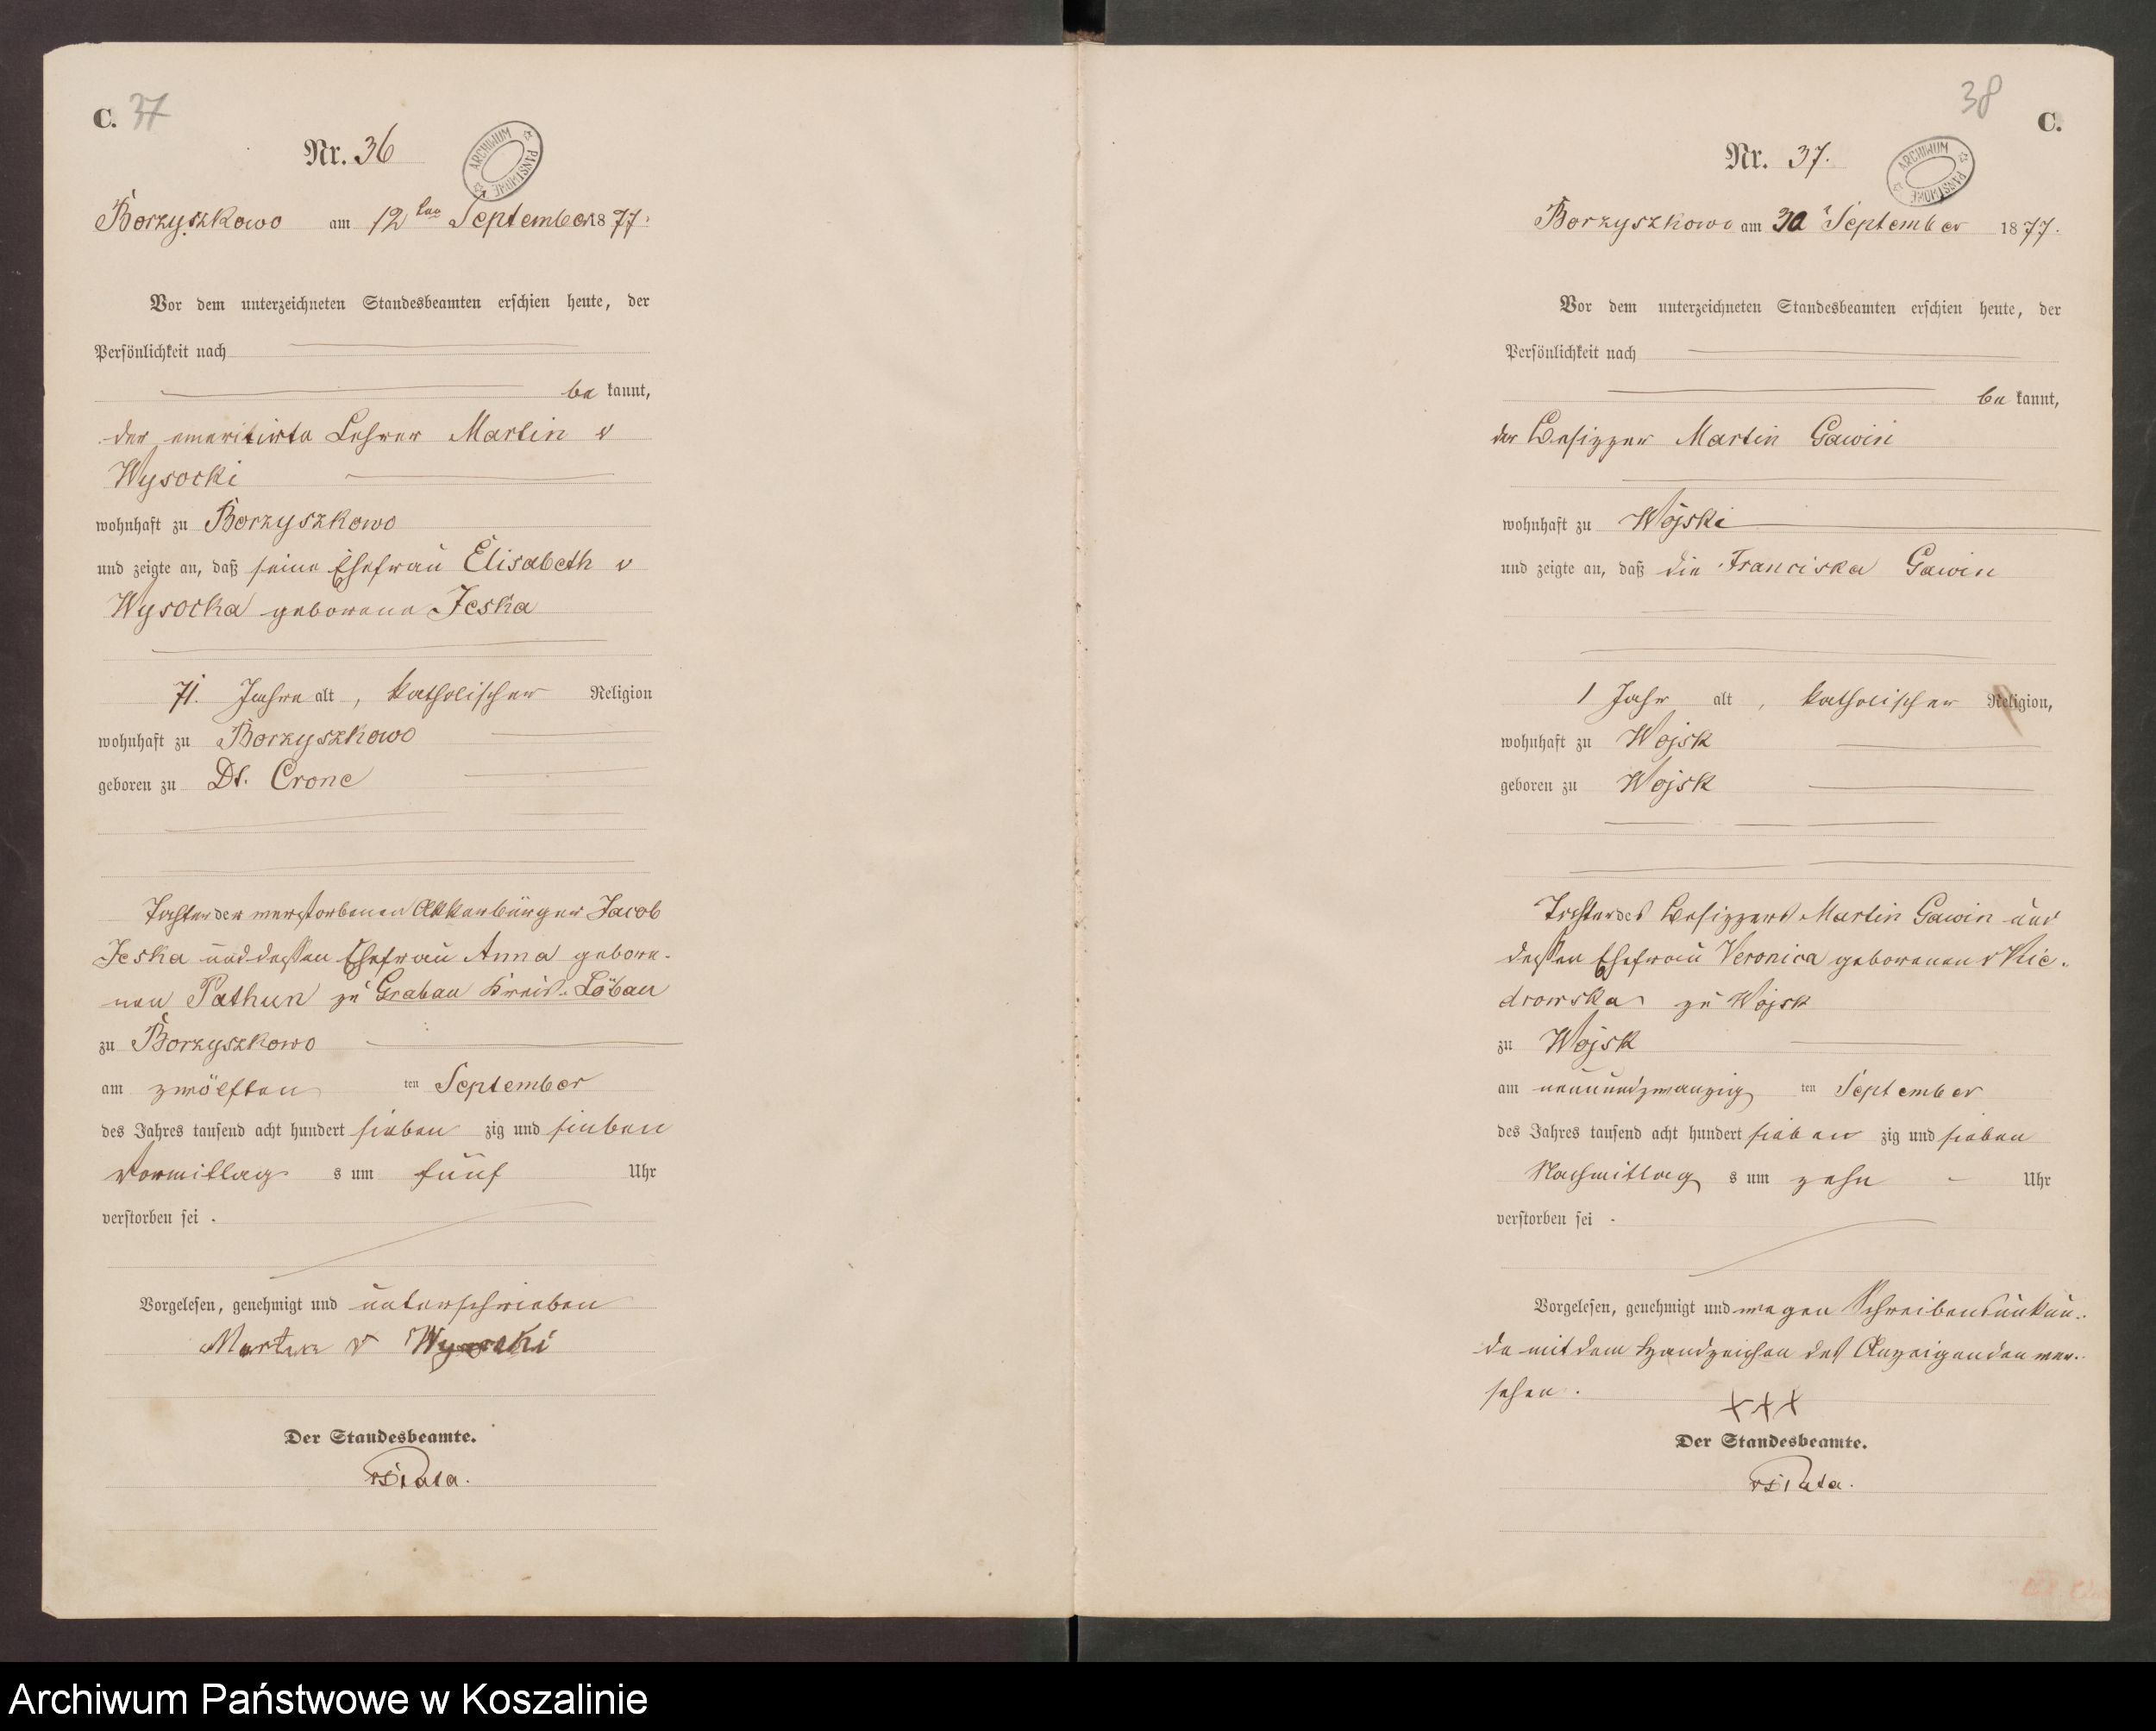 C. 37
Nr. 36
ARCHIWUM PAŃSTWOWE
Borzyszkowo am 12ten September 1877.
Vor dem unterzeichneten Standesbeamten erschien heute, der
Persönlichkeit nach
be kannt,
der emeritirte Lehrer Martin v
Wysocki
wohnhaft zu Borzyszkowo
und zeigte an, daß seine Ehefrau Elisabeth v
Wysocka geborene Jeska
71 Jahre alt, katholischer Religion
wohnhaft zu Borzyszkowo
geboren zu Dt. Crone
Tochter der verstorbenen Akkerbürger Jacob
Jeska und dessen Ehefrau Anna gebore-
nen Pathun zu Grabau Kreis Löbau
zu Borzyszkowo
am zwölften ten September
des Jahres tausend acht hundert sieben zig und sieben
Vormittag s um fünf Uhr
verstorben sei.
Vorgelesen, genehmigt und unterschrieben
Martin v Wysocki
Der Standesbeamte.
38 C.
Nr. 37.
ARCHIWUM PAŃSTWOWE
Borzyszkowo am 30 September 1877.
Vor dem unterzeichneten Standesbeamten erschien heute, der
Persönlichkeit nach
be kannt,
der Besizzer Martin Gawin
wohnhaft zu Wojsk
und zeigte an, daß die Franciska Gawin
1 Jahr alt, katholischer Religion,
wohnhaft zu Wojsk
geboren zu Wojsk
Tochter des Besizzers Martin Gawin und
dessen Ehefrau Veronica geborenen v Kie-
drowska zu Wojsk
zu Wojsk
am neunundzwanzig ten September
des Jahres tausend acht hundert sieben zig und sieben
Nachmittag s um zehn Uhr
verstorben sei.
Vorgelesen, genehmigt und wegen Schreibensunkun-
de mit dem Handzeichen des Anzeigenden ver-
sehen.
+++
Der Standesbeamte.
Archiwum Państwowe w Koszalinie